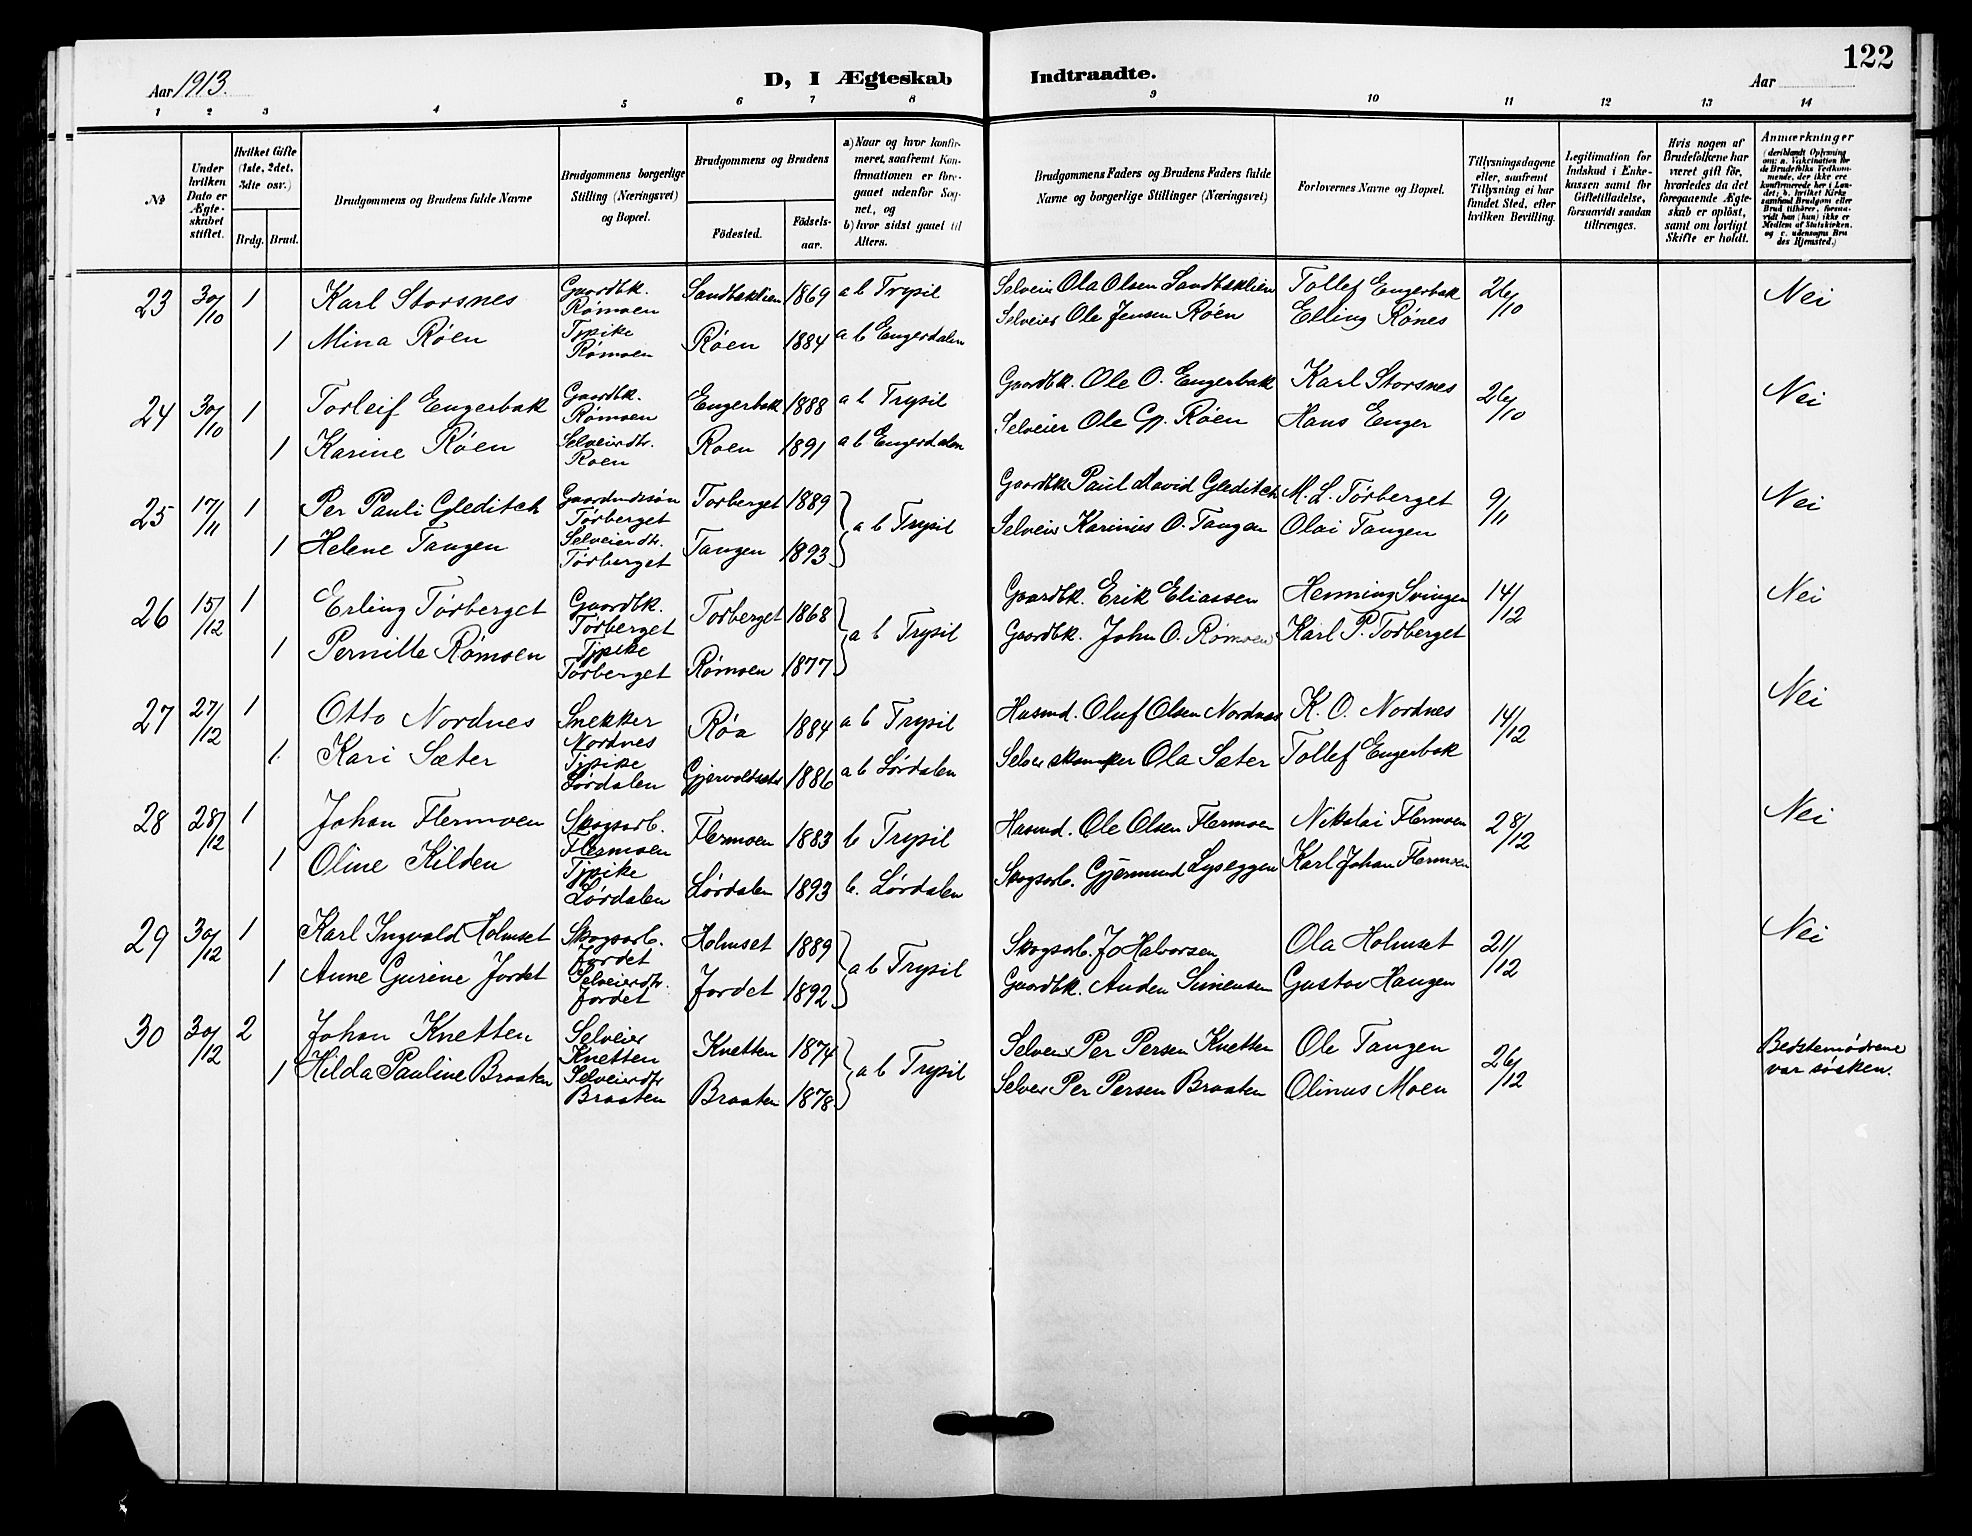 122
Aar 1913.
D, I Ægteskab Indtraadte.
Aar
1 2 3 4 5 6 7 8 9 10 11 12 13 14
No
Under hvilken Dato er Ægteskabet stiftet.
Hvilket Gifte (1ste, 2det, 3die osv.)
Brdg. Brud.
Brudgommens og Brudens fulde Navne
Brudgommens borgerlige Stilling (Næringsvei) og Bopæl.
Brudgommens og Brudens
Födested. Födselsaar.
a) Naar og hvor konfirmeret, saafremt Konfirmationen er foregaaet udenfor Sognet, og
b) hvor sidst gaaet til Alters.
Brudgommens Faders og Brudens Faders fulde Navne og borgerlige Stillinger (Næringsvei)
Forlovernes Navne og Bopæl.
Tillysningsdagene eller, saafremt Tillysning ei har fundet Sted, efter hvilken Bevilling.
Legitimation for Indskud i Enkekassen samt for Giftetilladelse, forsaavidt saadan tiltrænges.
Hvis nogen af Brudefolkene har været gift før, hvorledes da det foregaaende Ægteskab er opløst, samt om lovligt Skifte er holdt.
Anmærkninger
(deriblandt Oplysning om: a. Vakcination for de Brudefolks Vedkommende, der ikke ere konfirmerede her i Landet; b. hvilket Kirkesamfund Brudgom eller Brud tilhører, forsaavidt han (hun) ikke er Medlem af Statskirken. og c. udensogns Brudes Hjemsted.)
23 30/10 1 Karl Storsnes Gaardbk. Rømoen Sandbaklien 1869 a b Trysil Selveier Ola Olsen Sandbaklien Tollef Engerbak 26/10 Nei
1 Mina Röen Tjpike Rømoen Röen 1884 a b Engerdalen Selveier Ole Jensen Röen Elling Rönes
24 30/10 1 Torleif Engerbak Gaardbk. Rømoen Engerbak 1888 a b Trysil Gaardbk. Ole O. Engerbak Karl Storsnes 26/10 Nei
1 Karine Röen Selveierdtr. Roen Roen 1891 a b Engerdalen Selveier Ole Gp. Röen Hans Enger
25 17/11 1 Per Pauli Gleditch Törberget Torberget 1889 a b Trysil Gaardbk Paul David Gleditch M. L. Törberget 9/11 Nei
1 Helene Tangen Selveierdtr. Törberget Tangen 1893 Selveier Karinus O. Tangen Olai Tangen
26 15/12 1 Erling Törberget Gaardbk. Törberget Torberget 1868 a b Trysil Gaardbk. Erik Eliassen Henning Svingen 14/12 Nei
1 Pernille Rømoen Tjpike Törberget Rømoen 1877 Gaardbk. John O. Rømoen Karl P. Torberget
27 27/12 1 Otto Nordnes Snekker Nordnes Röa 1884 a b Trysil Husmd. Oluf Olsen Nordnes K. O. Nordnes 14/12 Nei
1. Kari Sæter Tjpike Lørdalen 1886 a b Lördalen Ola Sæter Tollef Engerbak
28 28/12 1 Johan Flermoen Skogsarb. Flermoen Flermoen 1883 b Trysil Husmd. Ole Olsen Flermoen Nikolai Flermoen 28/12 Nei
1 Oline Kilden Tjpike Lördalen Lördalen 1893 b. Lördalen Skogsarb. Gjermund Lyseggen Karl Johan Flermoen
29 30/12 1 Karl Ingvald Holmset Skogsarb. Jordet Holmset 1889 a b Trysil Skogsarb. Jo Halvorsen Ola Holmset 21/12 Nei
1 Anne Gurine Jordet Selveierdtr. Jordet Jordet 1892 Gaardbk. Anden Simensen Gustav Haugen
30 30/12 2 Johan Knetten Selveier Knetten Knetten 1874 a b Trysil Selveier Per Persen Knetten Ole Tangen 26/12 Bedstemödrene var søsken.
1 Hilda Pauline Braaten Selveierdtr Braaten Braaten 1878 Selveier Per Persen Braaten Olinus Moen